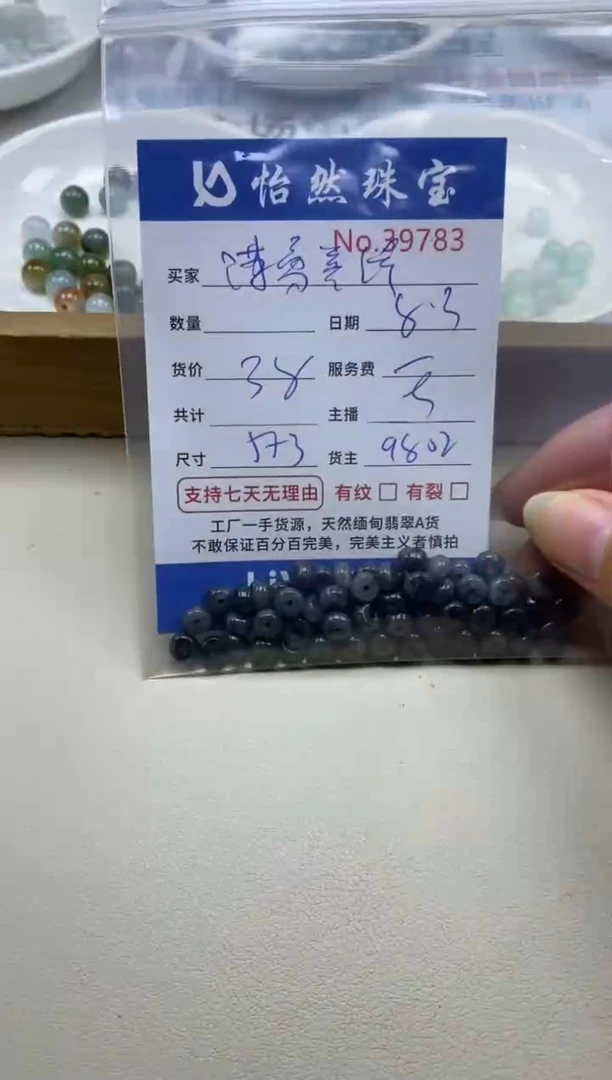 怡然珠宝
No.39783
买家
数量 日期 8.3
货价 38 服务费
共计 主播
尺寸 573 货主 9802
支持七天无理由 有纹 有裂
工厂一手货源，天然缅甸翡翠A货
不敢保证百分百完美，完美主义者慎拍